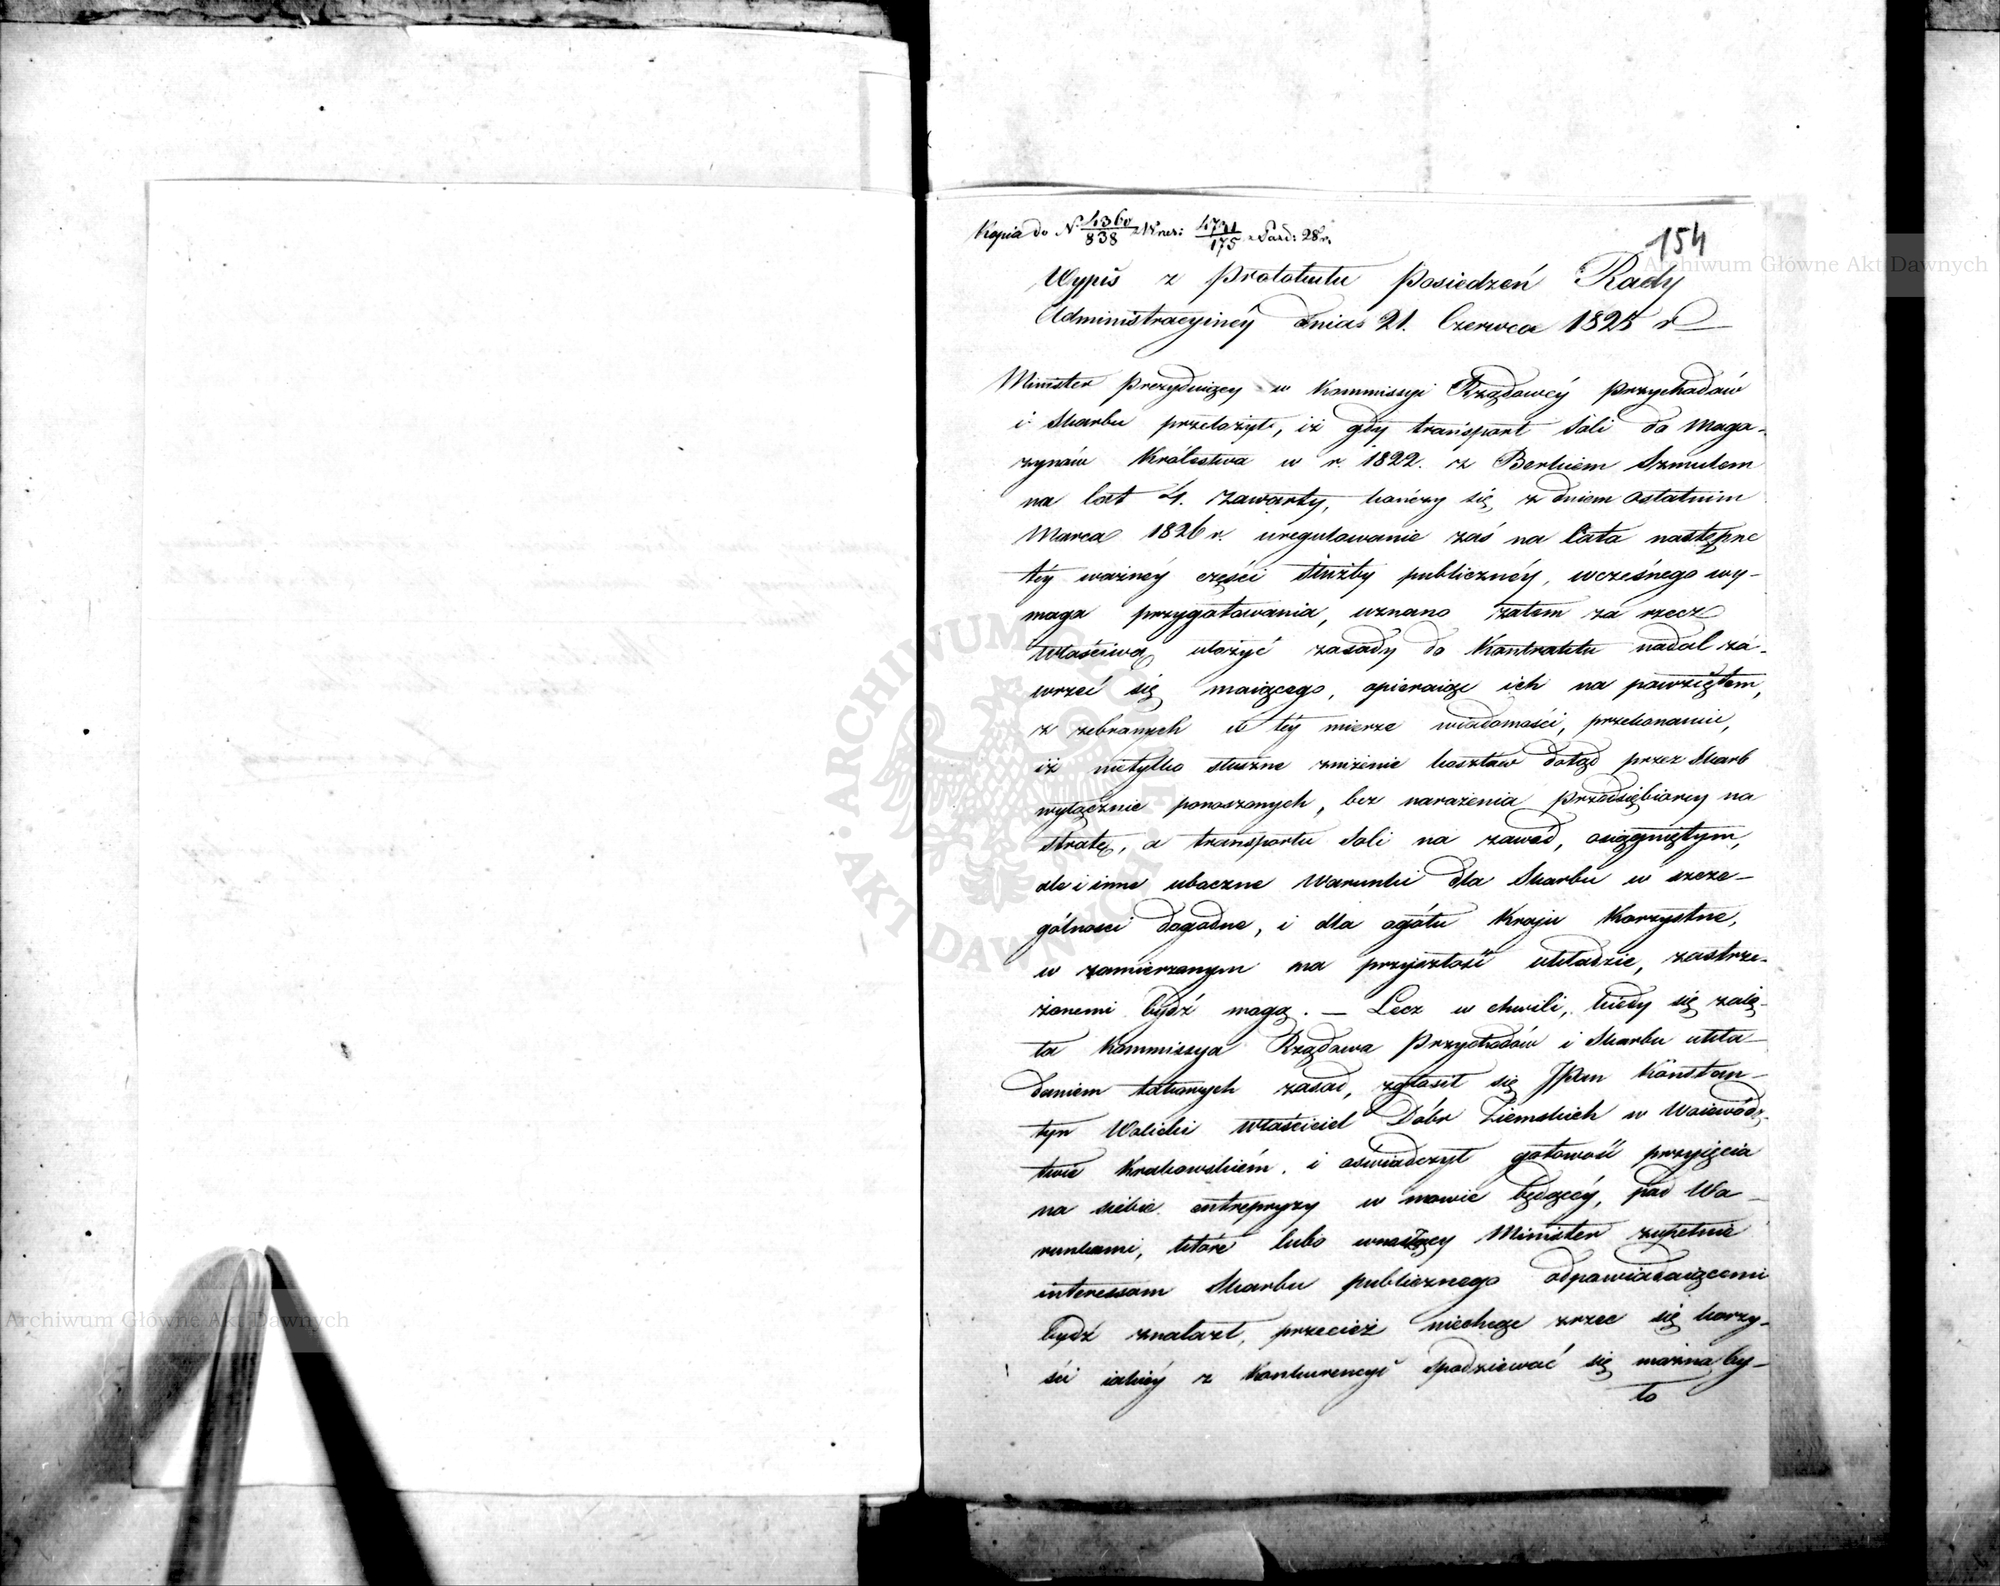 Kopia do N. 4360/838 4741/175 28
154
Wypis z Protokułu Posiedzeń Rady
Administracyinéy dnia 21. Czerwca 1825 r
Minister Prezyduiący w Kommissyi Rządowéy Przychodów
i Skarbu przełożył, iż gdy transport Soli do Maga-
zynów Królestwa w r. 1822. z Berkiem Szmulem
na lat 4. zawarty, kończy się z dniem ostatnim
Marca 1826 r. uregulowanie zaś na lata następne
téy ważnéy części służby publicznéy, wczesnego wy-
maga przygotowania, uznano zatem za rzecz
właściwą ułożyć zasady do Kontraktu nadal za-
wrzeć się maiącego, opieraiąc ich na powziętem,
z zebranych w téy mierze wiadomości, przekonaniu,
iż nietylko słuszne zniżenie kosztów dotąd przez Skarb
wyłącznie ponoszonych, bez narażenia Przedsiębiorcy na
stratę, a transportu Soli na zawód, osiągniętym,
ale i inne uboczne Warunki dla Skarbu w szcze-
gólności dogodne, i dla ogółu Kraju Korzystne,
w zamierzonym na przyszłość układzie, zastrze-
żonemi bydź mogą. — Lecz w chwili, kiedy się zaię-
ła Kommissya Rządowa Przychodów i Skarbu ukła-
daniem takowych zasad, zgłosił się JPan Konstan-
tyn Wolicki właściciel Dóbr Ziemskich w Woiewódz-
twie Krakowskiém, i oświadczył gotowość przyięcia
na siebie entrepryzy w mowie będącéy, pod Wa-
runkami, które lubo wnoszący Minister zupełnie
interessom Skarbu publicznego odpowiadaiącemi
bydź znalazł, przecież niechcąc zrzec się korzy-
ści iakiéy z Konkurencyi spodziewać się można by-
ło
ARCHIWUM GŁÓWNE AKT DAWNYCH
Archiwum Główne Akt Dawnych
Archiwum Główne Akt Dawnych